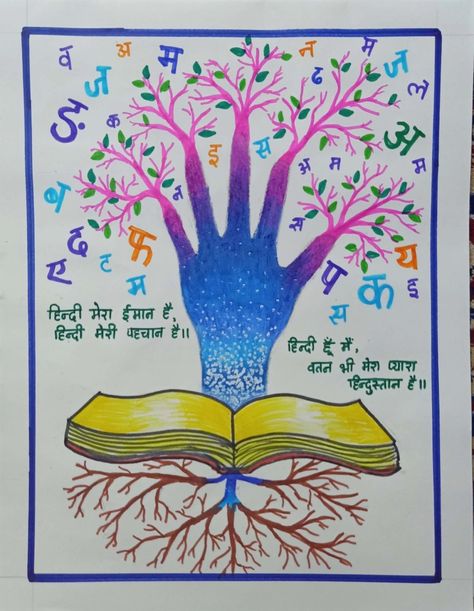 व अ म न म
ज ढ ज ले
ङ क इ स अ
अ म म
न स
ढ फ य
ए ट प क इ
म स
हिन्दी मेरा ईमान है,
हिन्दी मेरी पहचान है॥
हिन्दी हूँ मैं,
वतन भी मेरा प्यारा
हिन्दुस्तान है॥